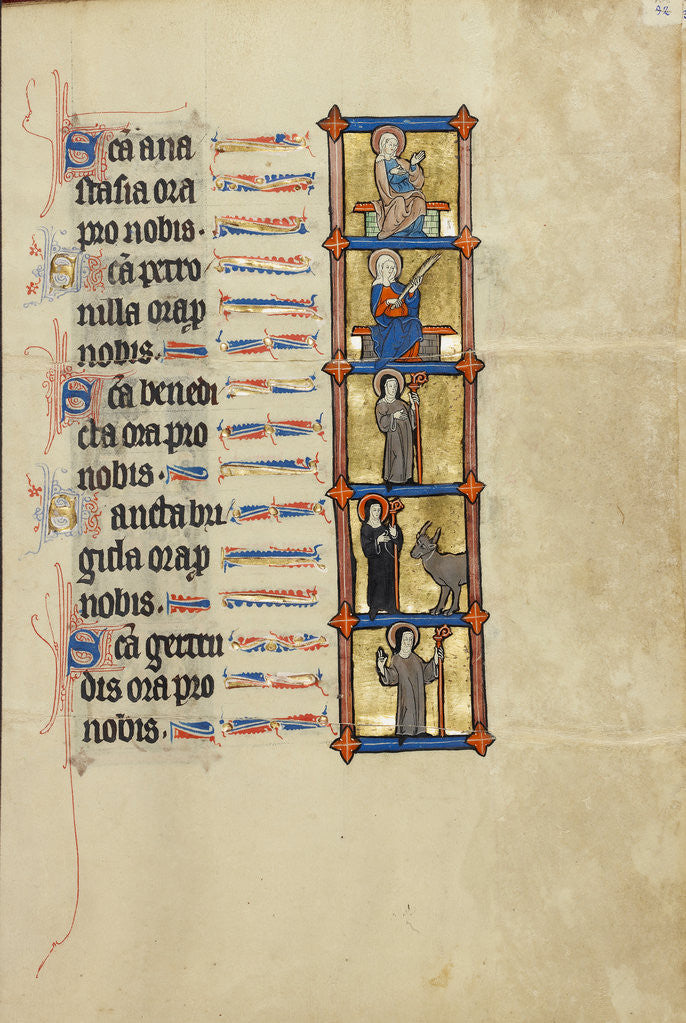 42
Scā ana
stasia ora
pro nobis.
Scā petro
nilla orap
nobis.
Scā benedi
cta ora pro
nobis.
Sancta bri
gida orap
nobis.
Scā gertru
dis ora pro
nobis.